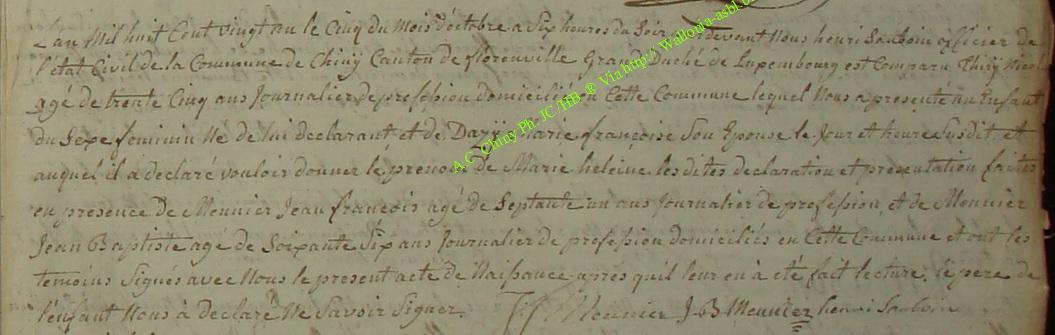 L'an Mil huit Cent vingt un le Cinq du Mois d'octobre a Six heures du Soir devant Nous henri Sauboin officier de
l'état Civil de la Commune de Chiny Canton de florenville Grand Duché de Luxembourg est Comparu Thiry Nicolas
agé de trente Cinq ans Journalier de profession domicilié en Cette Commune lequel Nous a presenté un Enfant
du Sexe feminin Né de lui declarant et de Marie françoise Son Epouse le Jour et heure Susdit et
auquel il a declaré vouloir donner le prenom de Marie heleine les dites declaration et presentation faites
en presence de Meunier Jean françois agé de Septante un ans Journalier de profession et de Meunier
Jean Baptiste agé de Soixante Six ans Journalier de profession domiciliés en Cette Commune et ont les
temoins Signés avec Nous le present acte de Naissance aprés quil leur en à été fait lecture le pere de
l'enfant Nous à declaré Ne Savoir Signer
J f Meunier J-B Meunier henri Sauboin
A.C. Chiny Ph. JC THB ® Via http:// Wallonia-asbl.be